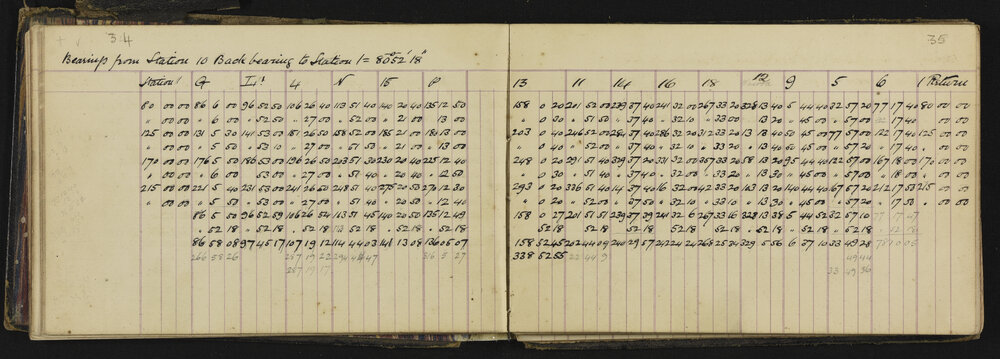 34
35
Bearings from Station 10 Back bearing to Station 1 = 80° 52' 18"
Station 1 G 4 N 15 P 13 11 14 16 18 12 9 5 6 1 Return
80 00 00 86 6 00 96 52 50 106 26 40 113 51 40 140 20 40 135 12 50 158 0 20 201 52 00 239 37 40 241 32 00 267 33 20 328 13 40 5 44 40 32 57 20 77 17 40 80 00 00
" 00 00 " 6 00 " 52 50 " 27 00 " 52 00 " 21 00 " 13 00 " 0 30 " 51 50 " 37 40 " 32 10 " 33 00 " 13 20 " 45 00 " 57 00 " 17 40 " 00 00
125 00 00 131 5 30 141 53 00 151 26 50 158 52 00 185 21 00 180 13 00 203 0 40 246 52 00 284 37 40 286 32 20 312 33 20 13 13 40 50 45 00 77 57 00 122 17 40 125 00 00
" 00 00 " 5 50 " 53 10 " 27 00 " 51 50 " 21 00 " 13 00 " 0 40 " 52 00 " 37 40 " 32 10 " 33 20 " 13 40 " 45 00 " 57 20 " 17 40 " 00 00
170 00 00 176 5 50 186 53 00 196 26 50 203 51 30 230 20 40 225 12 40 248 0 20 291 51 40 329 37 20 331 32 00 357 33 20 58 13 20 95 44 40 122 57 00 167 18 00 170 00 00
" 00 00 " 6 00 " 53 00 " 27 00 " 51 40 " 20 40 " 12 50 " 0 30 " 51 40 " 37 40 " 32 00 " 33 20 " 13 30 " 45 00 " 57 00 " 17 40 " 00 00
215 00 00 221 5 40 231 53 00 241 26 50 248 51 40 275 20 50 270 12 30 293 0 20 336 51 40 14 37 40 16 32 00 42 33 20 103 13 20 140 44 40 167 57 20 212 17 50 215 00 00
" 00 00 " 5 50 " 53 00 " 27 00 " 51 40 " 20 50 " 12 40 " 0 20 " 52 00 " 37 40 " 32 00 " 33 20 " 13 30 " 45 00 " 57 20 " 17 50 " 00 00
86 5 50 96 52 59 106 26 54 113 51 45 140 20 50 135 12 49 158 0 27 201 51 51 239 37 39 241 32 6 267 33 16 328 13 38 5 44 52 32 57 10 77 17 47
" 52 18 " 52 18 " 52 18 " 52 18 " 52 18 " 52 18 " 52 18 " 52 18 " 52 18 " 52 18 " 52 18 " 52 18 " 52 18 " 52 18
86 58 08 97 45 17 107 19 12 114 44 03 141 13 08 136 05 07 158 52 45 202 44 09 240 29 57 242 24 24 268 25 34 329 5 56 6 37 10 33 49 28
266 58 26 287 19 22 294 44 47 316 5 27 338 52 55 22 44 9 49 44
287 19 17 33 49 36